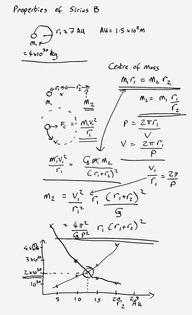 Properties of Sirius B
r₁ ≈ 7 AU AU = 1.5 × 10¹¹ m
m₁
= 4×10³⁰ kg
Centre of mass
m₁ r₁ = m₂ r₂
m₂ = m₁ r₁/r₂
r₁ r₂
m₁ m₂
F_c = m₁v₁²/r₁
P = 2πr₁/V
V = 2πr₁/P
m₁v₁²/r₁ = G m₁ m₂/(r₁+r₂)²
V₁/r₁ = 2π/P
m₂ = V₁²/r₁² r₁ (r₁+r₂)²/G
= 4π²/GP² r₁ (r₁+r₂)²
4×10³⁰
3×10³⁰
2×10³⁰
10³⁰
5 10 15 20 25
r₂ AU